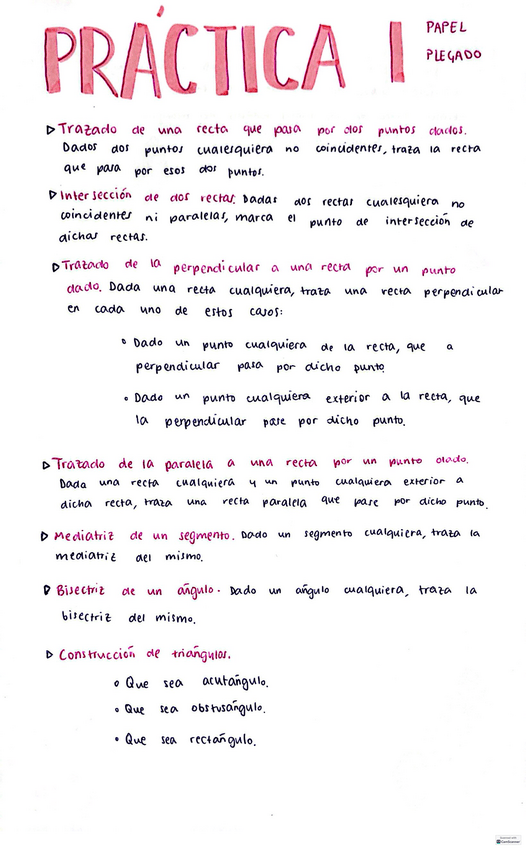 PRÁCTICA 1
PAPEL
PLEGADO
▷ Trazado de una recta que pasa por dos puntos dados.
Dados dos puntos cualesquiera no coincidentes, traza la recta
que pasa por esos dos puntos.
▷ Intersección de dos rectas. Dadas dos rectas cualesquiera no
coincidentes ni paralelas, marca el punto de intersección de
dichas rectas.
▷ Trazado de la perpendicular a una recta por un punto
dado. Dada una recta cualquiera, traza una recta perpendicular
en cada uno de estos casos:
∘ Dado un punto cualquiera de la recta, que a
perpendicular pasa por dicho punto
∘ Dado un punto cualquiera exterior a la recta, que
la perpendicular pase por dicho punto.
▷ Trazado de la paralela a una recta por un punto dado.
Dada una recta cualquiera y un punto cualquiera exterior a
dicha recta, traza una recta paralela que pase por dicho punto.
▷ Mediatriz de un segmento. Dado un segmento cualquiera, traza la
mediatriz del mismo.
▷ Bisectriz de un ángulo. Dado un ángulo cualquiera, traza la
bisectriz del mismo.
▷ Construcción de triángulos.
∘ Que sea acutángulo.
∘ Que sea obstusángulo.
∘ Que sea rectángulo.
CamScanner